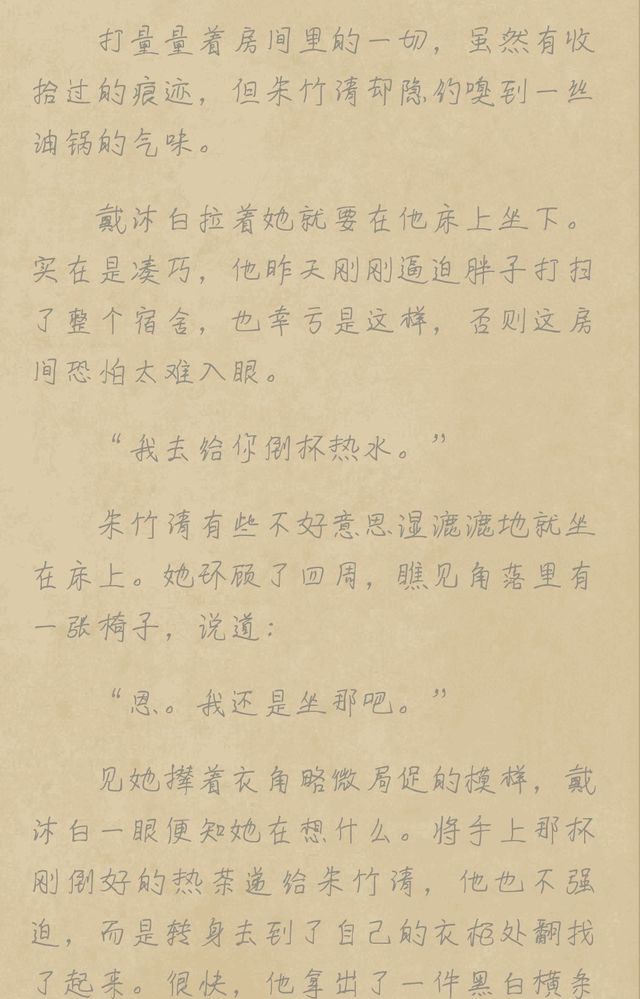 打量量着房间里的一切，虽然有收
拾过的痕迹，但朱竹清却隐约嗅到一丝
油锅的气味。
戴沐白拉着她就要在他床上坐下。
实在是凑巧，他昨天刚刚逼迫胖子打扫
了整个宿舍，也幸亏是这样，否则这房
间恐怕太难入眼。
“我去给你倒杯热水。”
朱竹清有些不好意思湿漉漉地就坐
在床上。她环顾了四周，瞧见角落里有
一张椅子，说道：
“恩。我还是坐那吧。”
见她撵着衣角略微局促的模样，戴
沐白一眼便知她在想什么。将手上那杯
刚倒好的热茶递给朱竹清，他也不强
迫，而是转身去到了自己的衣柜处翻找
了起来。很快，他拿出了一件黑白横条